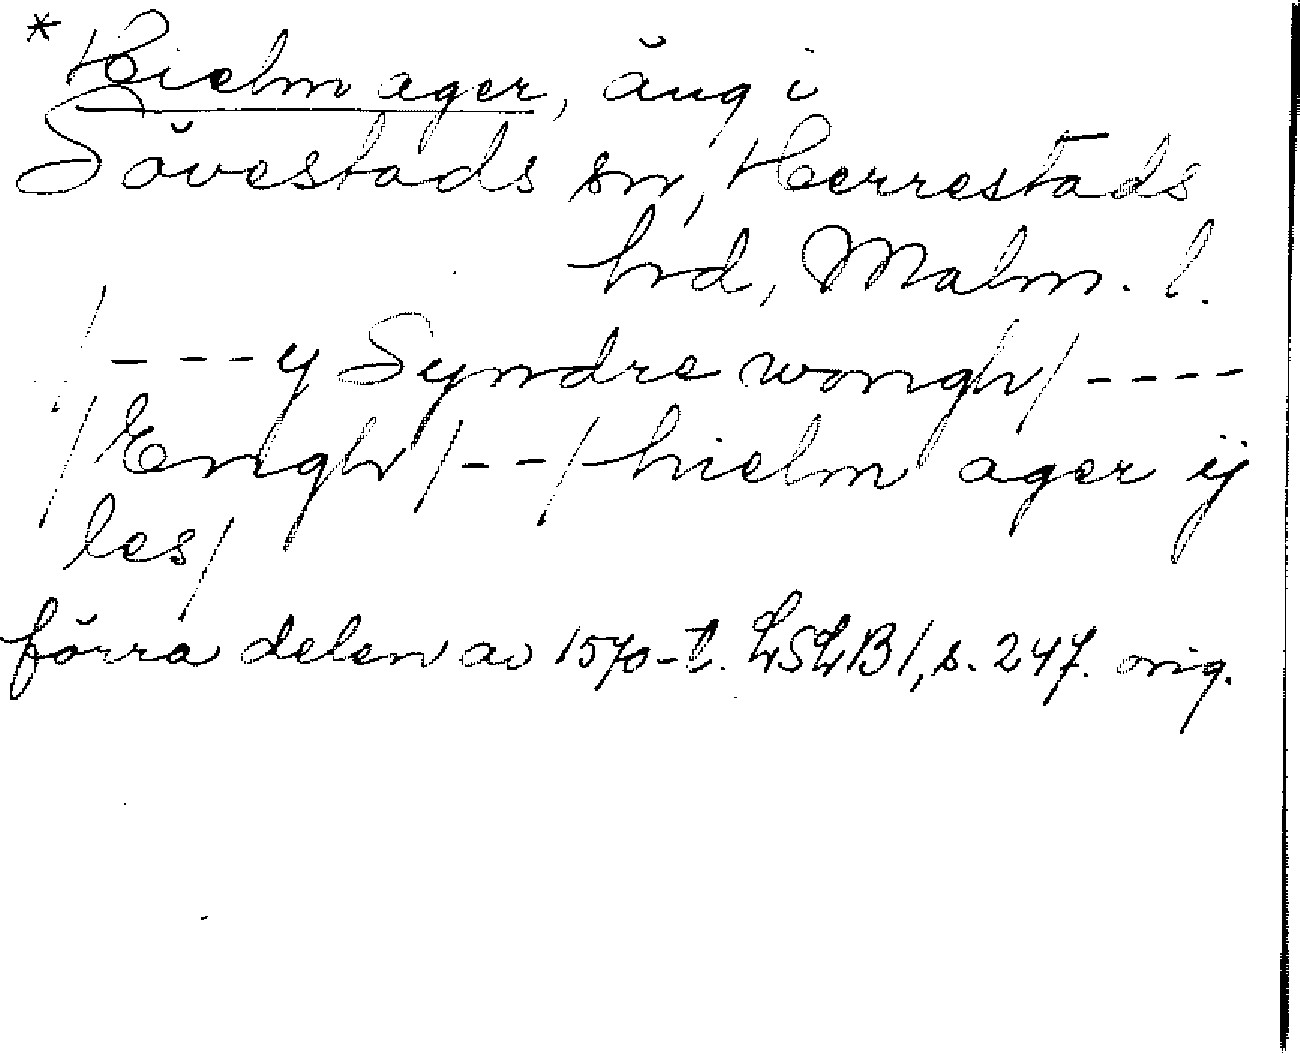 * Hielm ager, äng i
Sövestads sn, Herrestads
hrd, Malm. l.
/---y Syndre wongh/----
/Engh/--/hielm ager ij
les/
förra delen av 1570-t. LSLB 1, s. 247. orig.